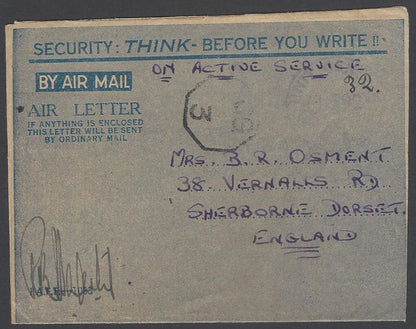 SECURITY: THINK - BEFORE YOU WRITE !!
BY AIR MAIL
ON ACTIVE SERVICE
32.
AIR LETTER
IF ANYTHING IS ENCLOSED
THIS LETTER WILL BE SENT
BY ORDINARY MAIL
3
MRS. B. R. OSMENT
38. VERNALLS RD
SHERBORNE DORSET.
ENGLAND